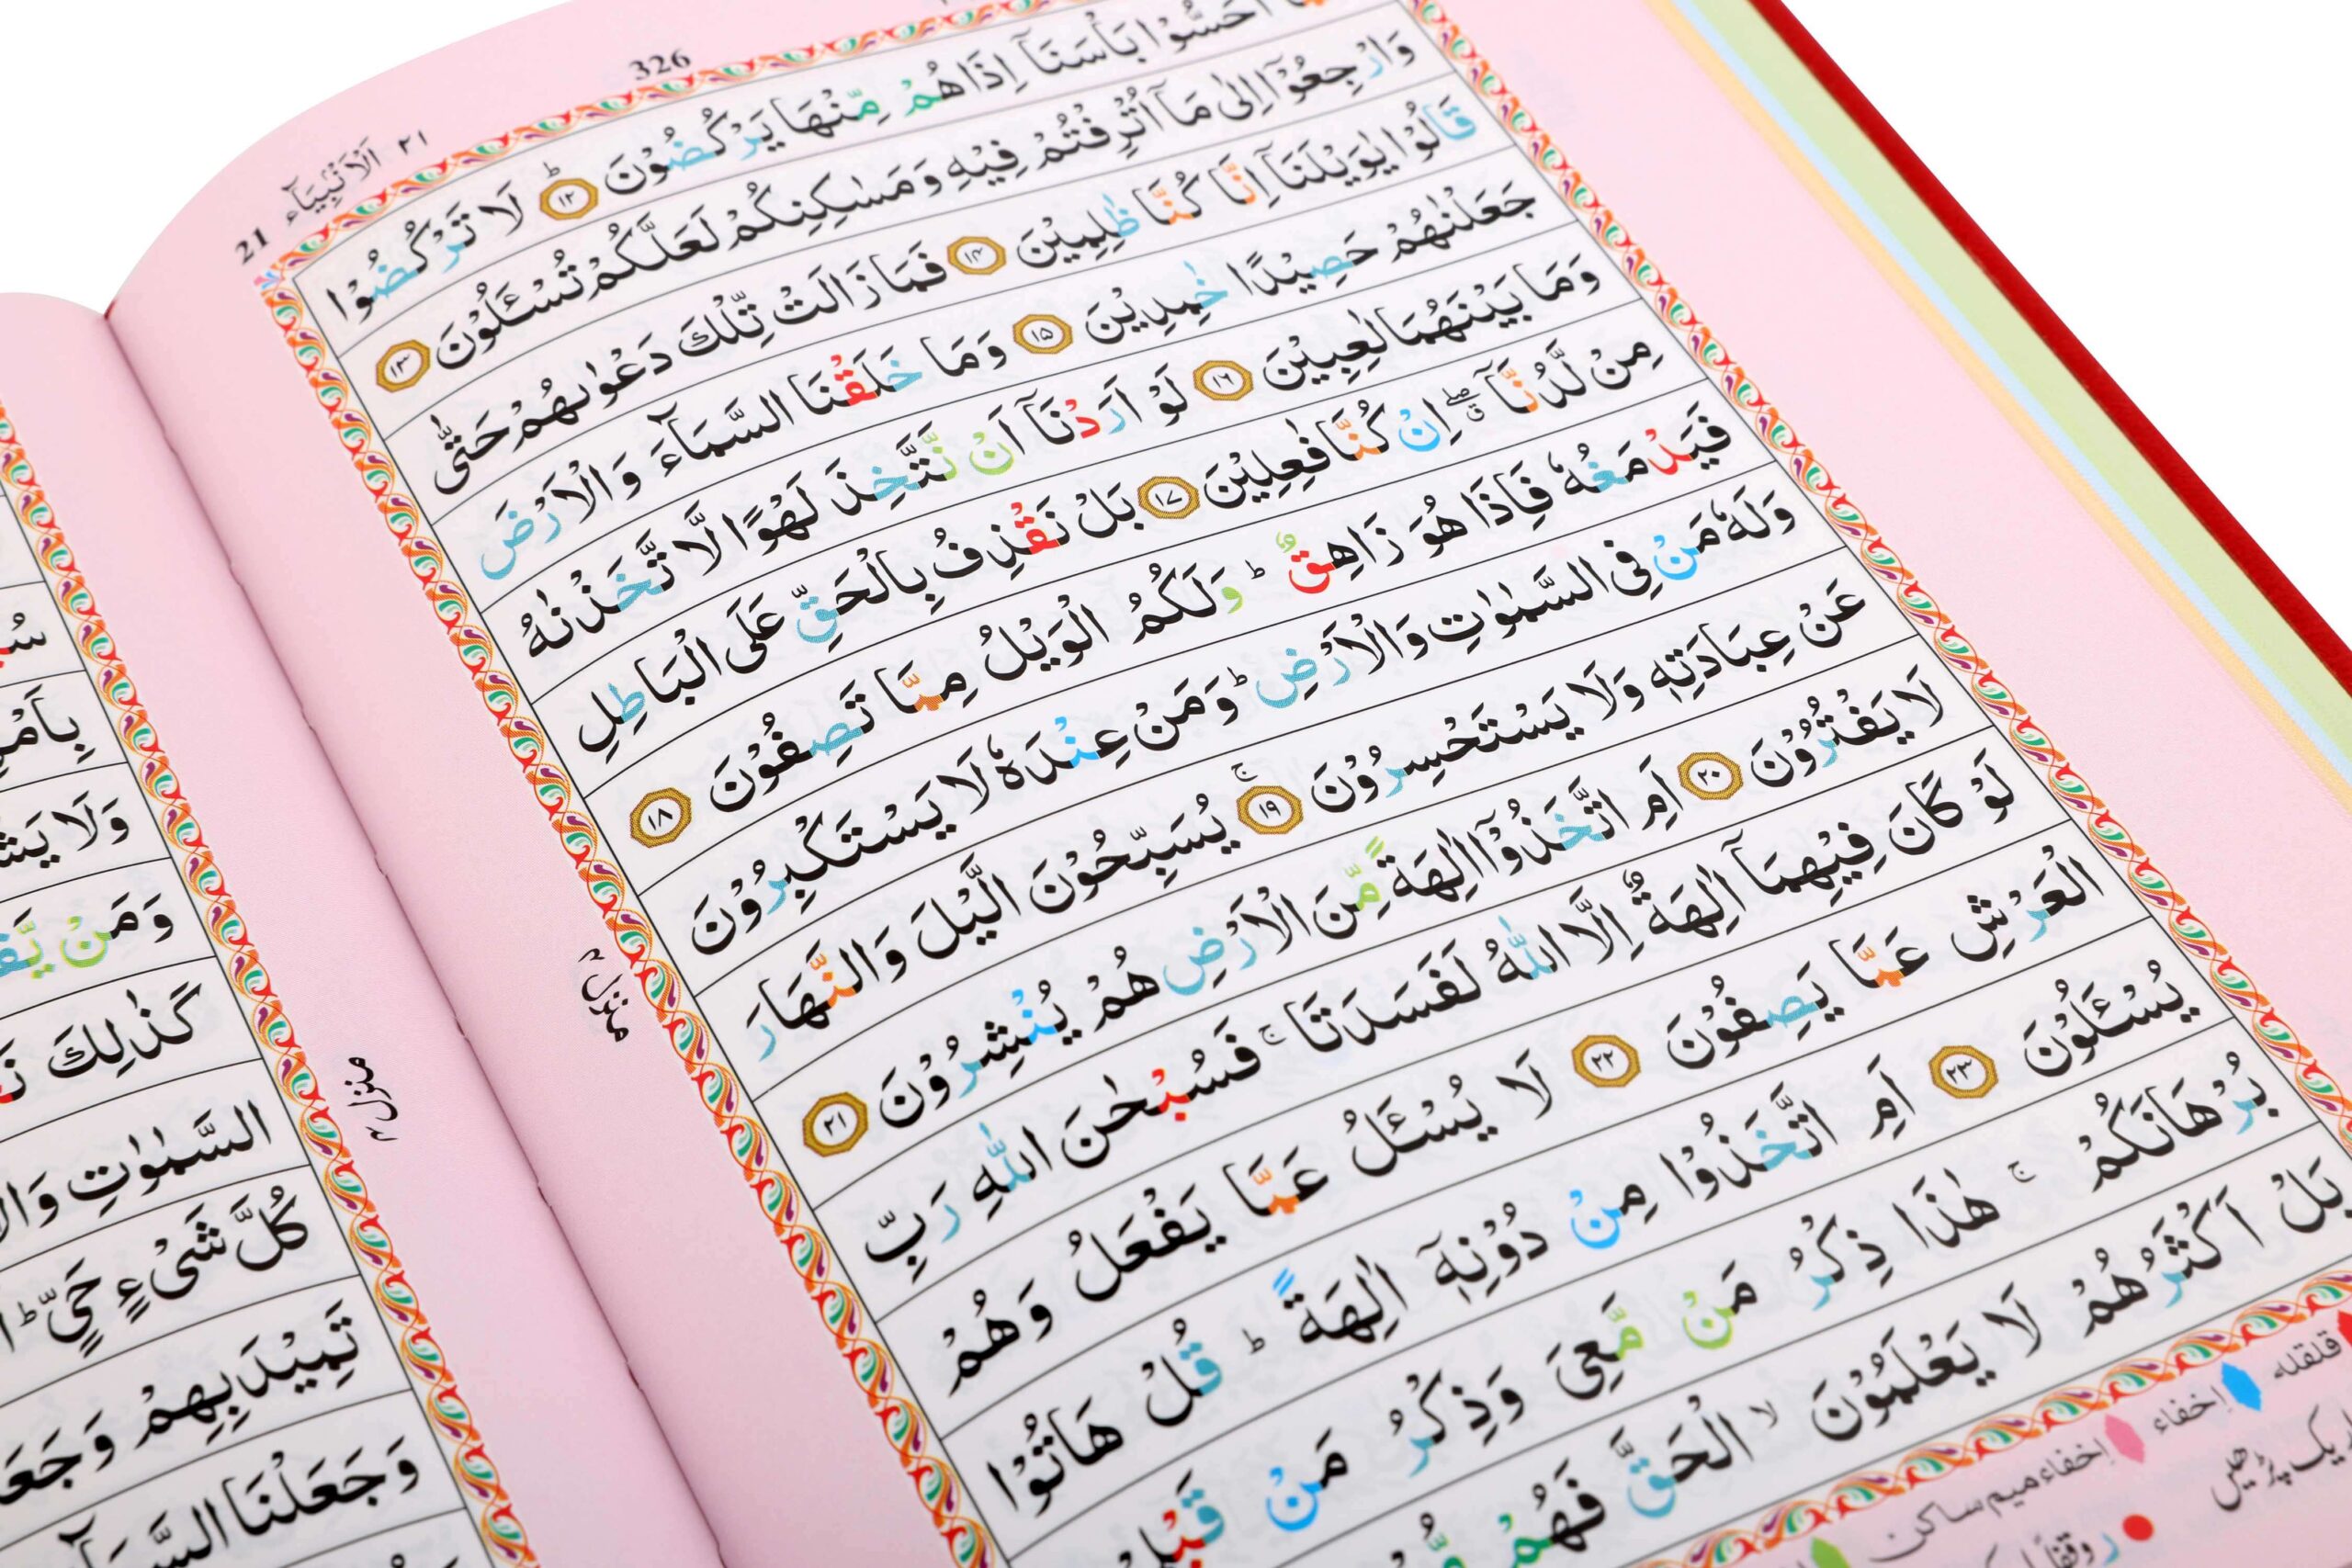 326
٢١ اَلْاَنْۢبِيَآء 21
اَحَسُّوْا بَاْسَنَاۤ اِذَا هُمْ مِّنْهَا يَرْكُضُوْنَ ؕ ١٢ لَا تَرْكُضُوْا
وَارْجِعُوْۤا اِلٰى مَاۤ اُتْرِفْتُمْ فِيْهِ وَمَسٰكِنِكُمْ لَعَلَّكُمْ تُسْـَٔلُوْنَ ١٣
قَالُوْا يٰوَيْلَنَاۤ اِنَّا كُنَّا ظٰلِمِيْنَ ١٤ فَمَا زَالَتْ تِّلْكَ دَعْوٰىهُمْ حَتّٰى
جَعَلْنٰهُمْ حَصِيْدًا خٰمِدِيْنَ ١٥ وَمَا خَلَقْنَا السَّمَآءَ وَالْاَرْضَ
وَمَا بَيْنَهُمَا لٰعِبِيْنَ ١٦ لَوْ اَرَدْنَاۤ اَنْ نَّتَّخِذَ لَهْوًا لَّا تَّخَذْنٰهُ
مِنْ لَّدُنَّاۤ ۖق اِنْ كُنَّا فٰعِلِيْنَ ١٧ بَلْ نَقْذِفُ بِالْحَقِّ عَلَى الْبَاطِلِ
فَيَدْمَغُهٗ فَاِذَا هُوَ زَاهِقٌ ؕ وَلَكُمُ الْوَيْلُ مِمَّا تَصِفُوْنَ ١٨
وَلَهٗ مَنْ فِى السَّمٰوٰتِ وَالْاَرْضِ ؕ وَمَنْ عِنْدَهٗ لَا يَسْتَكْبِرُوْنَ
عَنْ عِبَادَتِهٖ وَلَا يَسْتَحْسِرُوْنَ ۚ ١٩ يُسَبِّحُوْنَ الَّيْلَ وَالنَّهَارَ
لَا يَفْتُرُوْنَ ٢٠ اَمِ اتَّخَذُوْۤا اٰلِهَةً مِّنَ الْاَرْضِ هُمْ يُنْشِرُوْنَ ٢١
لَوْ كَانَ فِيْهِمَاۤ اٰلِهَةٌ اِلَّا اللّٰهُ لَفَسَدَتَا ۚ فَسُبْحٰنَ اللّٰهِ رَبِّ
الْعَرْشِ عَمَّا يَصِفُوْنَ ٢٢ لَا يُسْـَٔلُ عَمَّا يَفْعَلُ وَهُمْ
يُسْـَٔلُوْنَ ٢٣ اَمِ اتَّخَذُوْا مِنْ دُوْنِهٖۤ اٰلِهَةً ؕ قُلْ هَاتُوْا
بُرْهَانَكُمْ ۚ هٰذَا ذِكْرُ مَنْ مَّعِىَ وَذِكْرُ مَنْ قَبْلِىْ
بَلْ اَكْثَرُهُمْ لَا يَعْلَمُوْنَ ۙ الْحَقَّ فَهُمْ
منزل ٤
قلقله
إخفاء
إخفاء ميم ساكن
بِاَمْرِهٖ
وَلَا يَشْ
وَمَنْ يَّقُ
كَذٰلِكَ
السَّمٰوٰتِ وَالْ
كُلَّ شَىْءٍ حَىٍّ ؕ
تَمِيْدَ بِهِمْ وَجَعَ
وَجَعَلْنَا السَّمَآ
منزل ٤